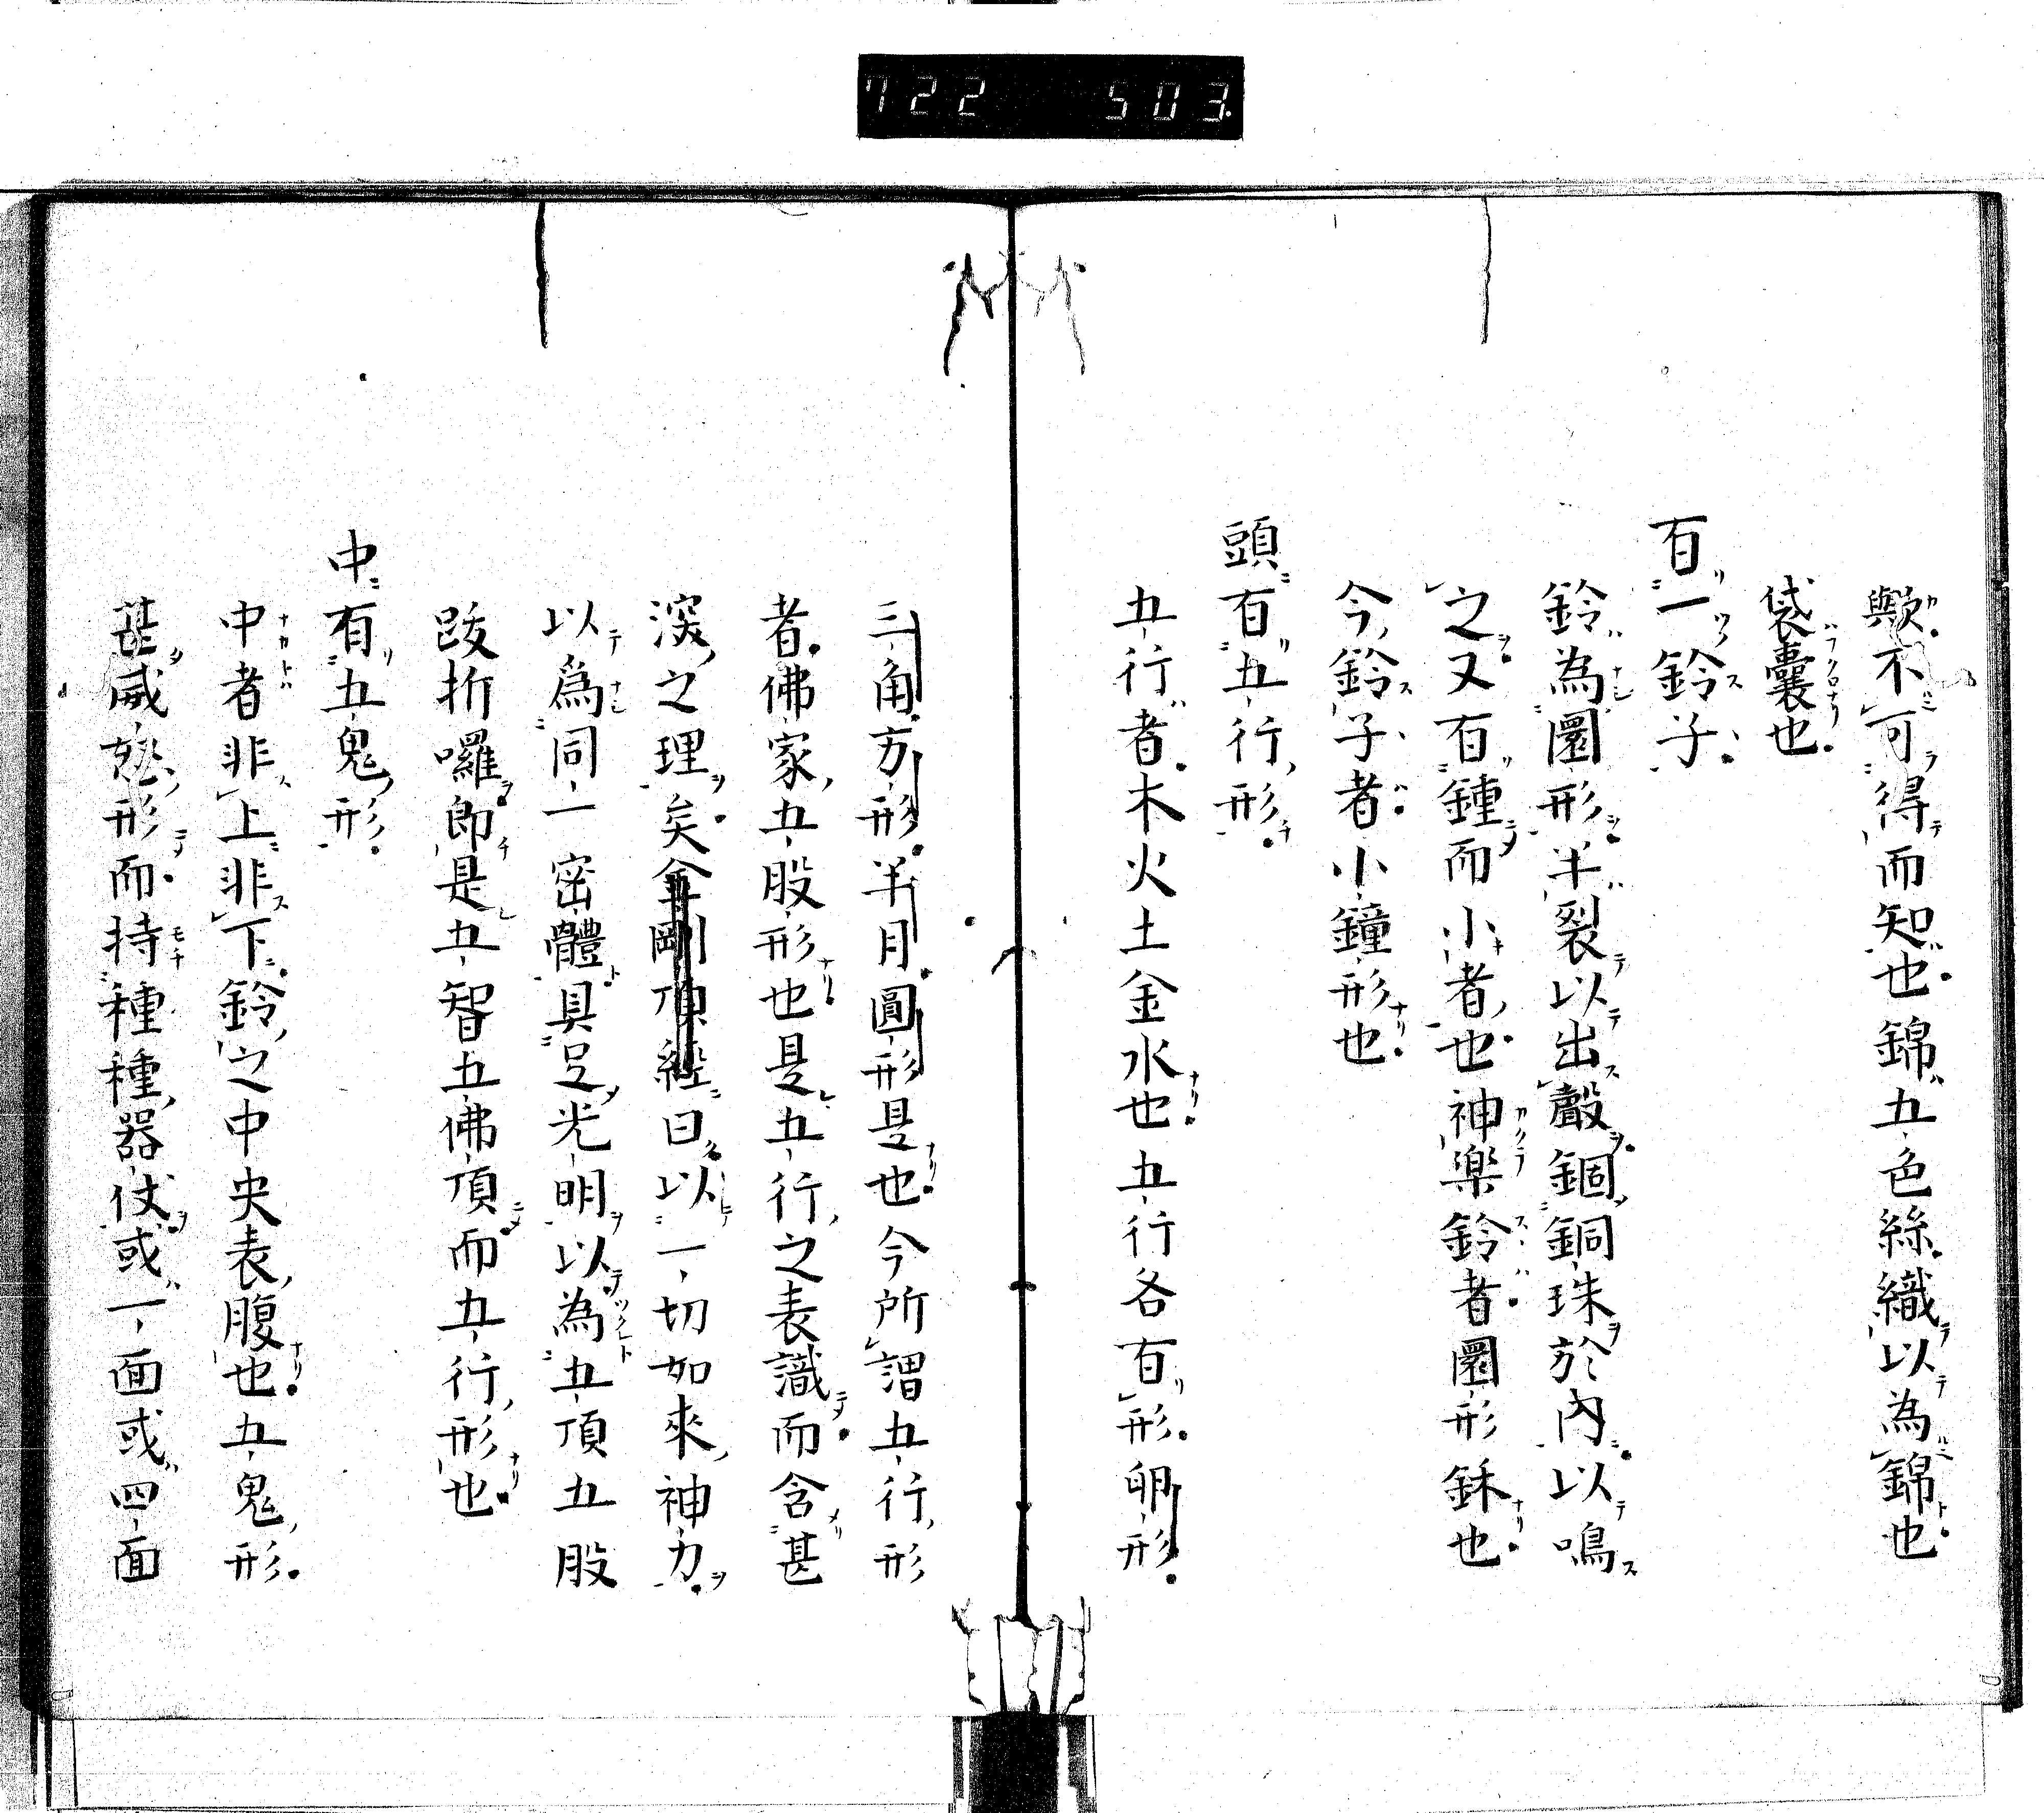 722 503
歟不可得而知也錦五色絲織以為錦也
袋囊也
有一鈴子
鈴為圜形半裂以出聲錮銅珠於內以鳴
之又有鍾而小者也神樂鈴者圜形鉌也
今鈴子者小鐘形也
頭有五行形
五行者木火土金水也五行各有形卵形
三角方形半月圓形是也今所謂五行形
者佛家五股形也是五行之表識而含甚
深之理矣金剛頂經曰以一切如來神力
以為同一密體具足光明以為五頂五股
跋折囉即是五智五佛頂而五行形也
中有五鬼形
中者非上非下鈴之中央表腹也五鬼形
甚威怒形而持種種器仗或一面或四面